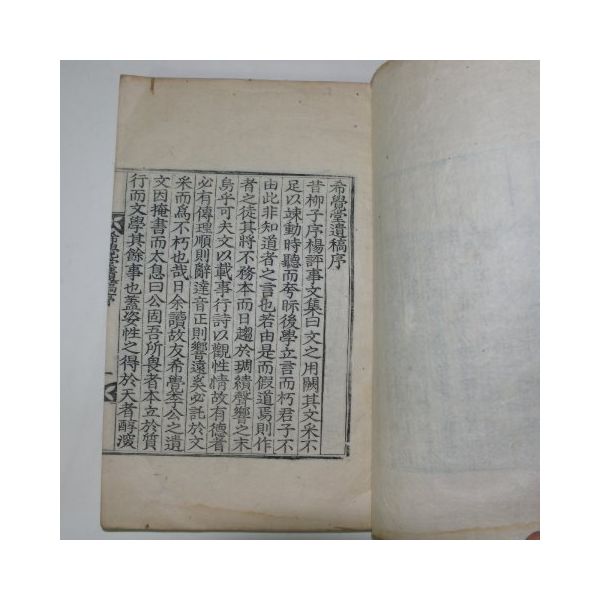 希覺堂遺稿序
昔柳子序楊評事文集曰文之用闕其文采不
足以竦動時聽而夸眎後學立言而朽君子不
由此非知道者之言也若由是而假道焉則作
者之徒其將不務本而日趨於琱繢聲響之末
烏乎可夫文以載事行詩以觀性情故有德者
必有傳理順則辭達音正則響遠奚必託於文
采而爲不朽也哉日余讀故友希覺李公之遺
文因掩書而太息曰公固吾所畏者本立於質
行而文學其餘事也蓋姿性之得於天者醇
希覺堂遺稿序
一